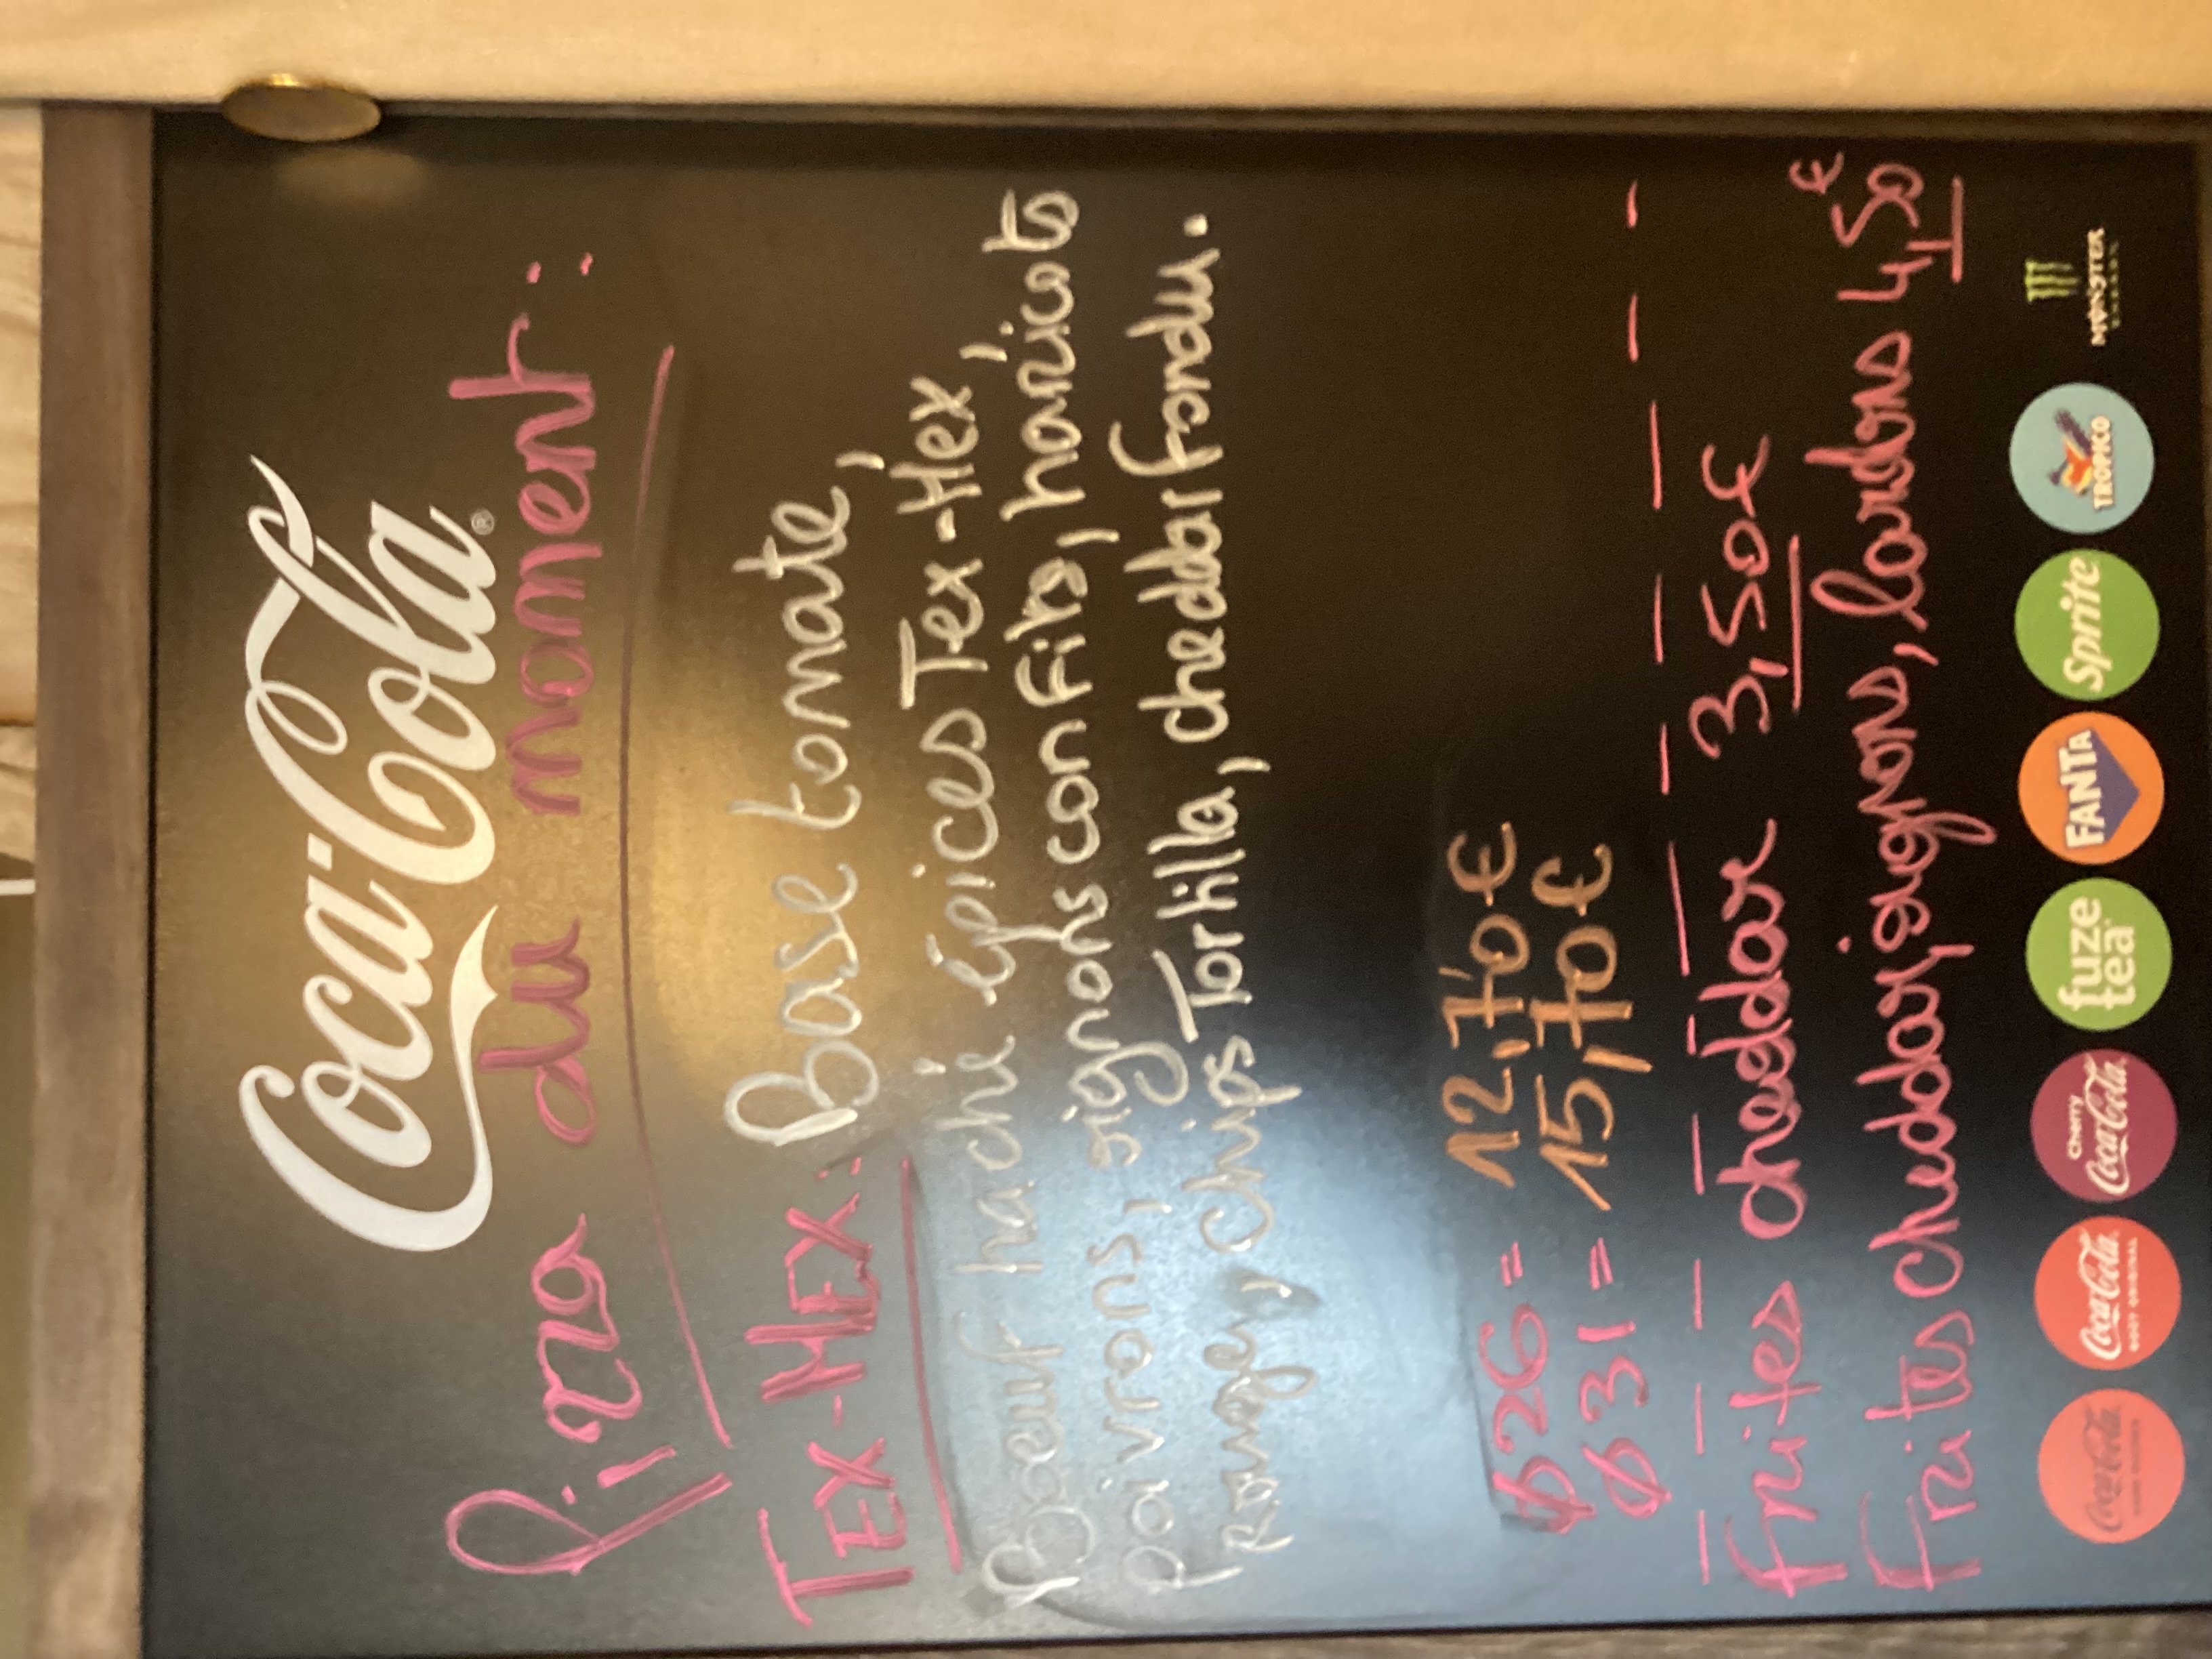 Coca-Cola®
Pizza du moment :
TEX-MEX : Base tomate,
Boeuf haché épices Tex-Mex,
poivrons, oignons confits, haricots
rouges, chips Tortilla, cheddar fondu.
Ø26 = 12,70€
Ø31 = 15,70€
Frites cheddar 3,50€
Frites cheddar, oignons, lardons 4,50€
Coca-Cola
Coca-Cola GOÛT ORIGINAL
Cherry Coca-Cola
fuze tea
FANTA
Sprite
TROPICO
MONSTER ENERGY